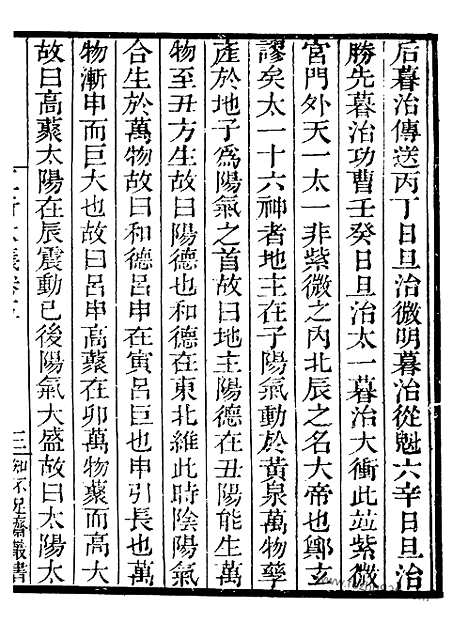 后暮治傳送丙丁日旦治微明暮治從魁六辛日旦治
勝先暮治功曹壬癸日旦治太一暮治大衝此竝紫微
宮門外天一太一非紫微之內北辰之名大帝也鄭玄
謬矣太一十六神者地主在子陽氣動於黃泉萬物孳
產於地子爲陽氣之首故曰地主陽德在丑陽能生萬
物至丑方生故曰陽德也和德在東北維此時陰陽氣
合生於萬物故曰和德呂申在寅呂巨也申引長也萬
物漸申而巨大也故曰呂申高藂在卯萬物藂而高大
故曰高藂太陽在辰震動已後陽氣大盛故曰太陽太
五行大義卷五
三
知不足齋叢書